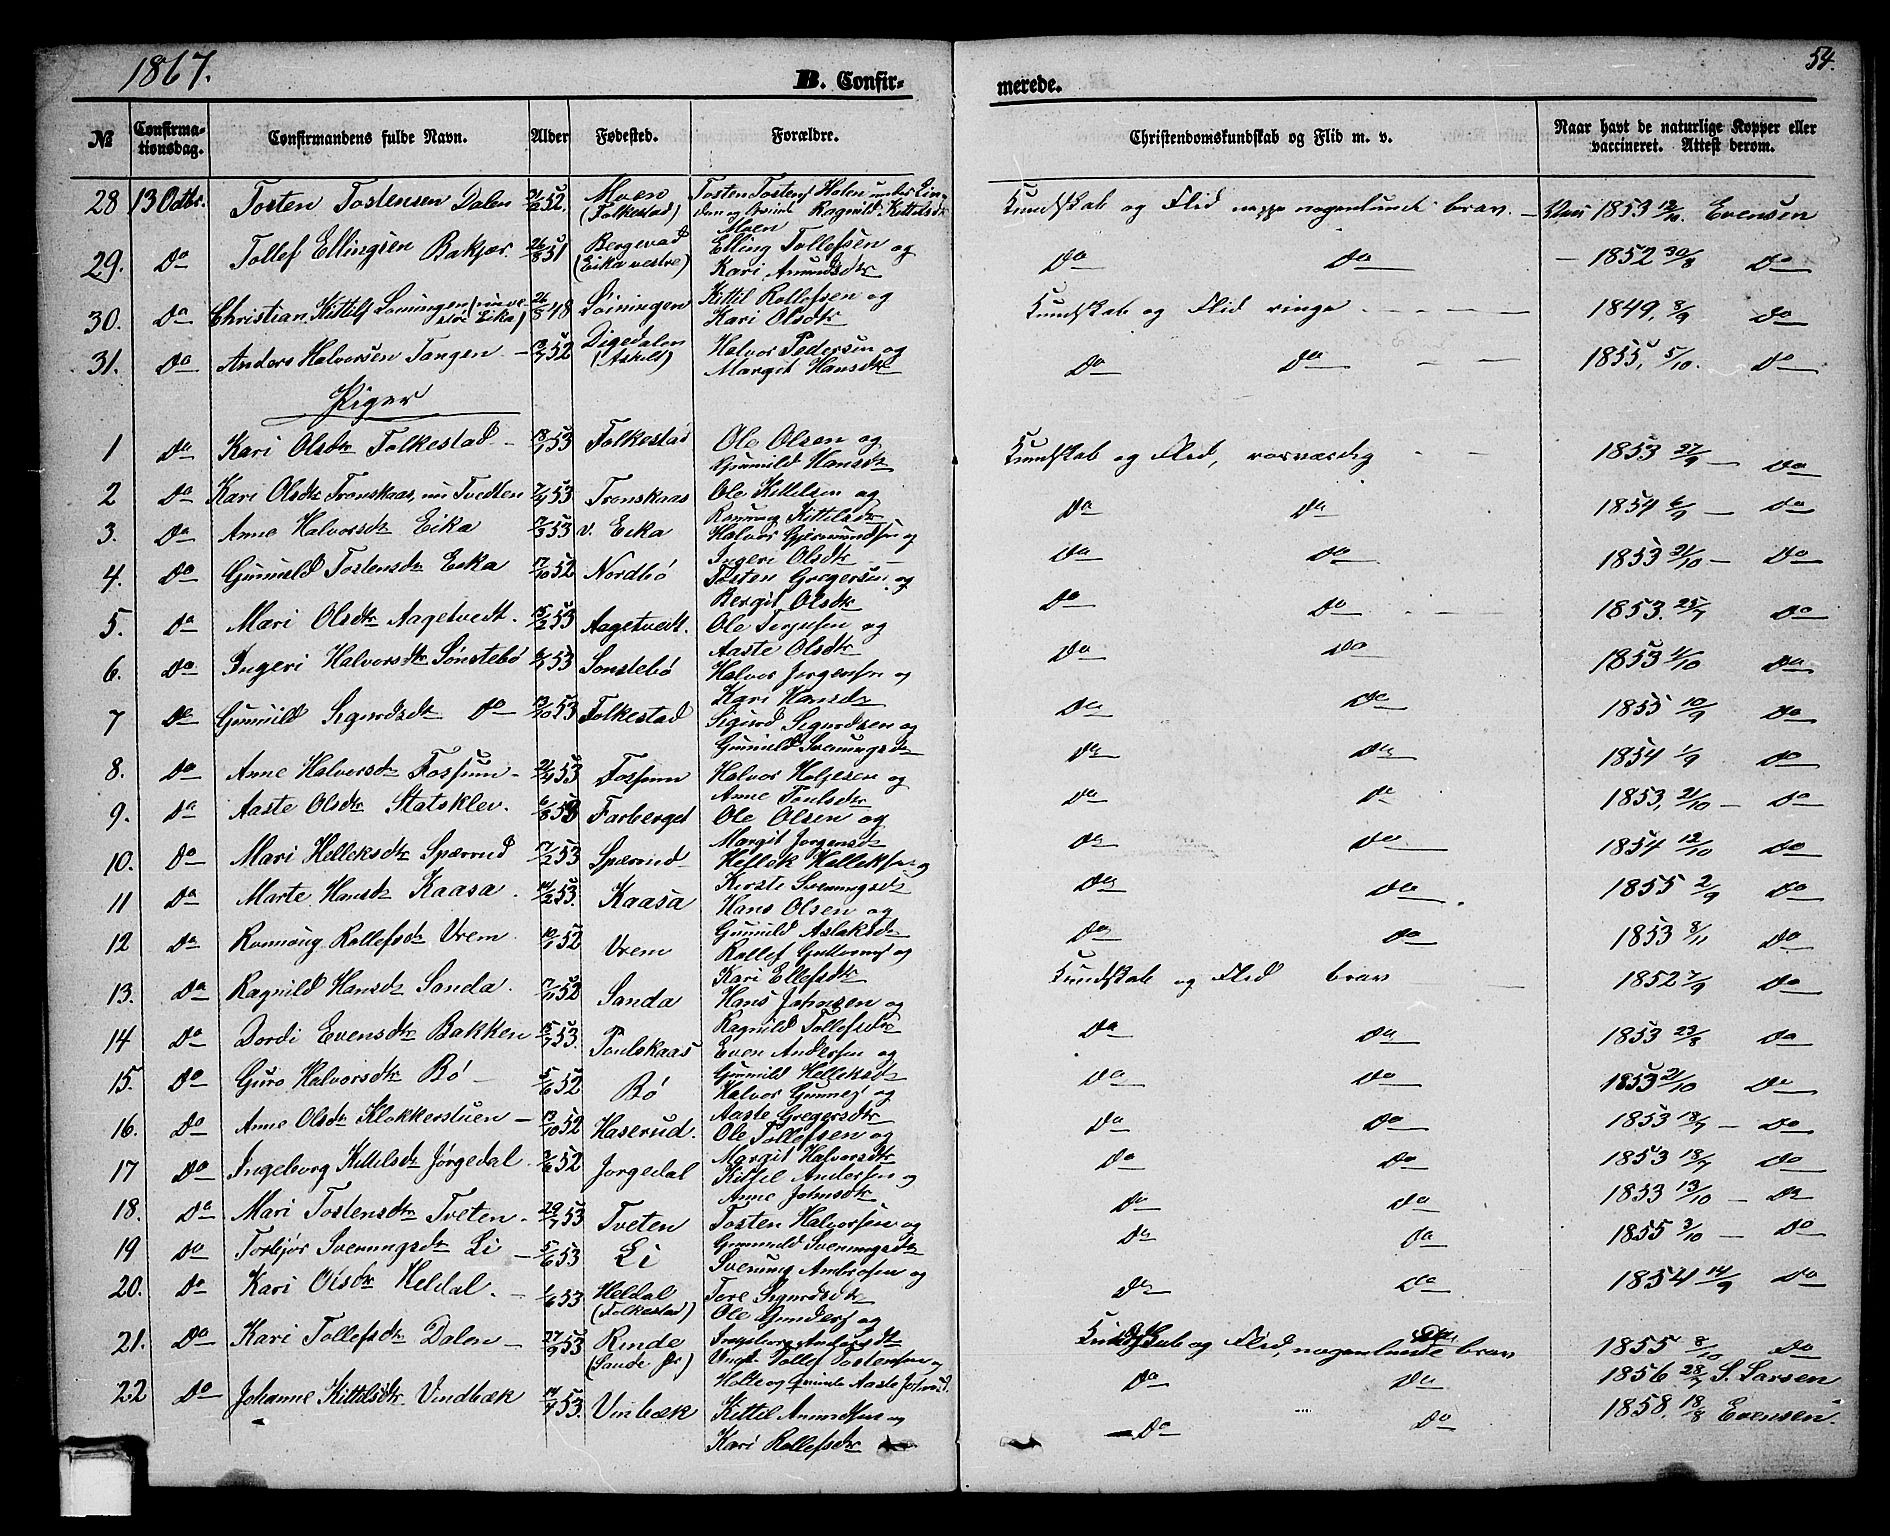 1867.
54.
B. Confir-
merede.
№ Confirma-tionsdag. Confirmandens fulde Navn. Alder Fødested. Forældre. Christendomskundskab og Flid m. v. Naar havt de naturlige Kopper eller vaccineret. Attest derom.
28 13 Octbr. Tosten Tostensen Dalen 52. Moen (Folkestad) Tosten Tostens Holen Ragnild Kittilsdr Moen Kundskab og Flid neppe nogenlunde brav. 1853 12/10. Evensen
29. Do Tollef Ellingsen Bakjær. 26/8 51 Bergevad (Eika vestre) Elling Tollefsen og Kari Amundsdr Do Do 1852 30/8 Do
30. Do Christian Kittils Loiningen 26/8 48 Loiningen Kittil Rollefsen og Kari Olsdr Kundskab og Flid ringe 1849, 8/9 Do
31. Do Anders Halvorsen Tangen 52 Digedalen (Askild) Halvor Pedersen og Margit Hansdr Do Do 1855, 5/10. Do
Piger
1 Do Kari Olsdr Folkestad 18/1 53 Folkestad Ole Olsen og Gunnild Hansdr Kundskab og Flid, rosværdig 1853 27/9 Do
2 Do Kari Olsdr Tronskaas, nu Tvedten 53 Tronskaas Ole Kittelsen og Ronnaug Kittilsdr Do Do 1854 6/9 Do
3. Do Anne Halvorsdr Eika 53 v. Eika Halvor Gjermundsen og Ingeri Olsdr Do Do 1853 21/10 Do
4. Do Gunnild Tostensdr Eika 17/10 52 Nordbø Tosten Gregersen og Bergit Olsdr Do Do 1853. 25/7 Do
5. Do Mari Olsdr Aagetvedt. 15/2 53 Aagetvedt. Ole Terjesen og Aaste Olsdr Do Do 1853 Do
6. Do Ingeri Halvorsdr Sønstebø 53 Sonstebø Halvor Jorgensen og Kari Hansdr Do Do 1855 10/9 Do
7 Do Gunnild Sigurdsdr Do 53 Folkestad Sigurd Sigurdsen og Gunnild Sveinungsdr Do Do 1854 1/9 Do
8. Do Anne Halvorsdr Fossum 21/4 53 Fossum Halvor Holjesen og Anne Poulsdr Do Do 1853, 21/10 Do
9. Do Aaste Olsdr Statsklev. 6/8 53 Farberget Ole Olsen og Margit Jorgensdr Do Do 1854 12/10 Do
10. Do Mari Helleksdr Spærrud 17/2 53 Spærrud Hellek Helleksen og Kirste Sveinungsdr Do Do 1855 2/9 Do
11 Do Marte Hansdr Kaasa. 53. Kaasa Hans Olsen og Gunnild Aslaksdr Do Do 1853 8/11 Do
12 Do Ronnoug Rollefsdr Vrem. 52 Vrem Rollef og Kari Ellefsdr Kundskab og Flid brav 1852 7/9 Do
13. Do Ragnild Hansdr Sanda. 52 Sanda Hans Johnsen og Ragnild Tollefsdr Do Do 1853 23/8 Do
14 Do Dordi Evensdr Bakken 53. Poulskaas Even Andersen og Gunnild Helleksdr Do Do 1853 21/10 Do
15. Do Guro Halvorsdr Bø 5/6 52 Bø Halvor Gunnes og Aaste Gregersdr Do Do 1853 18/7 Do
16. Do Anne Olsdr Klokkerstuen 13/10 52 Haserud. Ole Tollefsen og Margit Halvorsdr Do Do 1853 18/7 Do
17 Do Ingeborg Kittilsdr Jørgedal. 52 Jorgedal Kittil Andersen og Anne Johnsdr Do Do 1853 13/10 Do
18. Do Mari Tostensdr Tveten. 53 Tveten Tosten Halvorsen og Gunnuld Sveinungsdr Do Do 1855 3/10 Do
19 Do Torbjør Sveinungsdr Li 5/6 53 Li Sveinung Ambrosen og Tore Sigurdsdr Do Do 1854 14/9 Do
20. Do Kari Olsdr Heldal. 53 Heldal (Folkestad) Ole Gunders og Ingeborg Andersdr Do Do 1855 8/10 Do
21. Do Kari Tollefsdr Dalen 27/9 53 Rinde (Saude Pr) Ungk. Tollef Tostensen og Aaste Johnsd. Kundskab og Flid, nogenlunde brav 1856 28/7 S. Larsen
22 Do Johanne Kittilsdr Vindbæk 53. Vinbæk Kittil Amundsen og Kari Rollefsdr Do Do 1858. 18/8 Evensen.